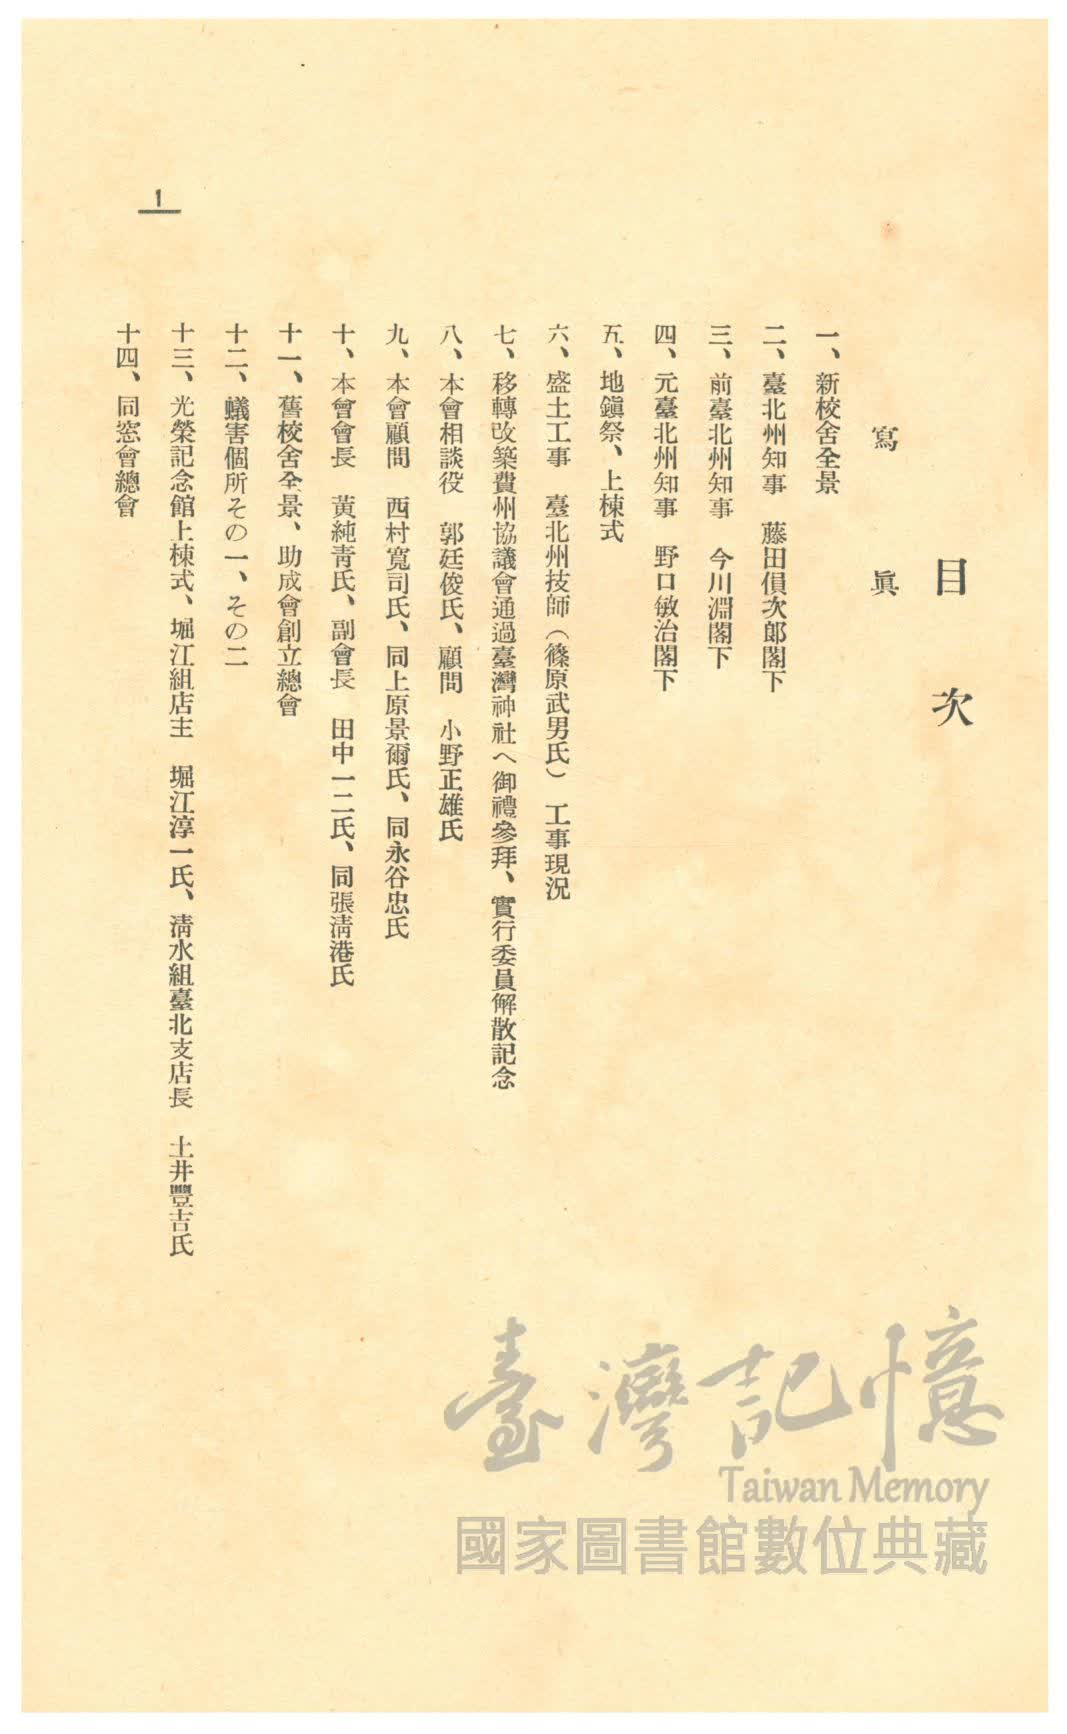 目次
寫眞
一、新校舍全景
二、臺北州知事　藤田傊次郎閣下
三、前臺北州知事　今川淵閣下
四、元臺北州知事　野口敏治閣下
五、地鎭祭、上棟式
六、盛土工事　臺北州技師（篠原武男氏）　工事現況
七、移轉改築費州協議會通過臺灣神社へ御禮參拜、實行委員解散記念
八、本會相談役　郭廷俊氏、顧問　小野正雄氏
九、本會顧問　西村寬司氏、同上原景爾氏、同永谷忠氏
十、本會會長　黃純靑氏、副會長　田中一二氏、同張淸港氏
十一、舊校舍全景、助成會創立總會
十二、蟻害個所その一、その二
十三、光榮記念館上棟式、堀江組店主　堀江淳一氏、淸水組臺北支店長　土井豐吉氏
十四、同窓會總會
1
臺灣記憶
Taiwan Memory
國家圖書館數位典藏